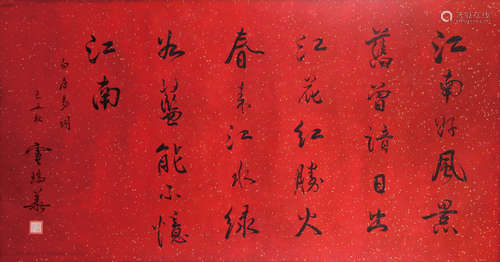 江南好風景
舊曾諳日出
江花紅勝火
春來江水綠
如藍能不憶
江南
白居易詞